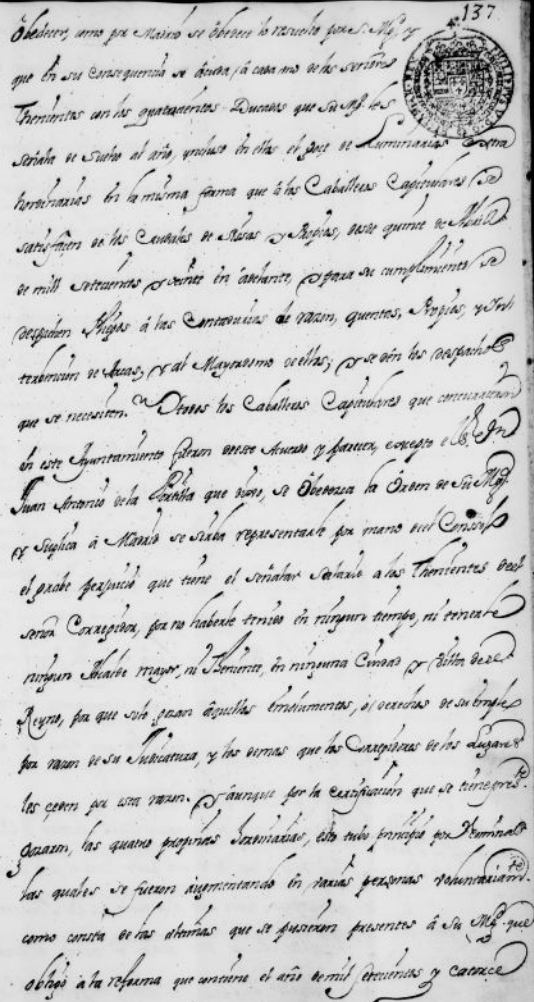 137
obedecer, como por Madrid se obedece lo resuelto por S. Mgd, y
que en su consequencia se acuda â cada uno de los señores
Thenientes con los quatrocientos Ducados que su Mgd les
señala de sueldo al año, yncluso en ellos el goze de Luminarias extra
hordinarias en la misma forma que â los Caballeros Capitulares se
satisfacen de los Caudales de Sisas y Propios, desde quinze de Abril
de mill setecientos y veinte en adelante, y para su cumplimiento se
despachen Pliegos â las Contadurias de razon, quentas, Propios, y Intt
terbencion de Arcas, y al Mayordomo de ellas; y se dên los despachos
que se necesiten. Y todos los Caballeros Capitulares que concurrieron
en este Ayuntamiento fueron deeste Acuerdo y parecer, excepto el S. Dn
Juan Antonio dela Portilla que dijo, se Obedezca la Orden de Su Mgd.
y Suplica â Madrid se sirba representarle por mano del Consejo
el grabe perjuicio que tiene el señalar salario a los Thenientes del
señor Corregidor, por no haberle tenido en ningun tiempo, ni tenerle
ningun Alcalde mayor, ni Theniente, en ninguna Ciudad y Villa deeste
Reyno, por que solo gozan aquellos emolumentos, ô derechos de su empleo
por razon de su Judicatura, y los demas que los Corregidores de los Lugares
les ceden por esta razon. Y aunque por la certificacion que se tiene preste
gozaron, las quatro propinas hordinarias, esto tubo principio por
las quales se fueron augmentando en varias personas voluntariamte.
como consta de las ultimas que se pusieron presentes â Su Mgd que
obligó a la reforma que contiene el año de mil setecientos y catorce